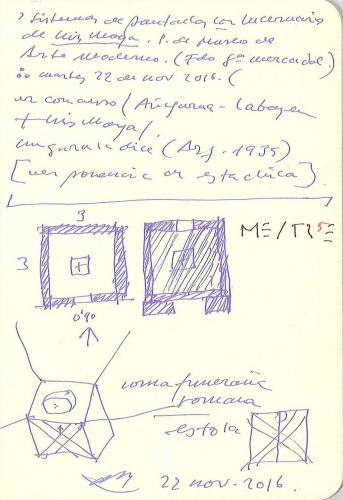 ? Sistemas de pantallas con lucernario
de Luis Moya. P. de Museo de
Arte Moderno. (Fdo Gª Mercadal.
martes 22 de nov 2016. (
ver concurso /
+ Luis Moya/.
dice (Arq. 1935)
[ver ponencia de esta chica].
3
3
0'90
ME/TR5E
cama funeraria
romana
estola
22 nov. 2016.